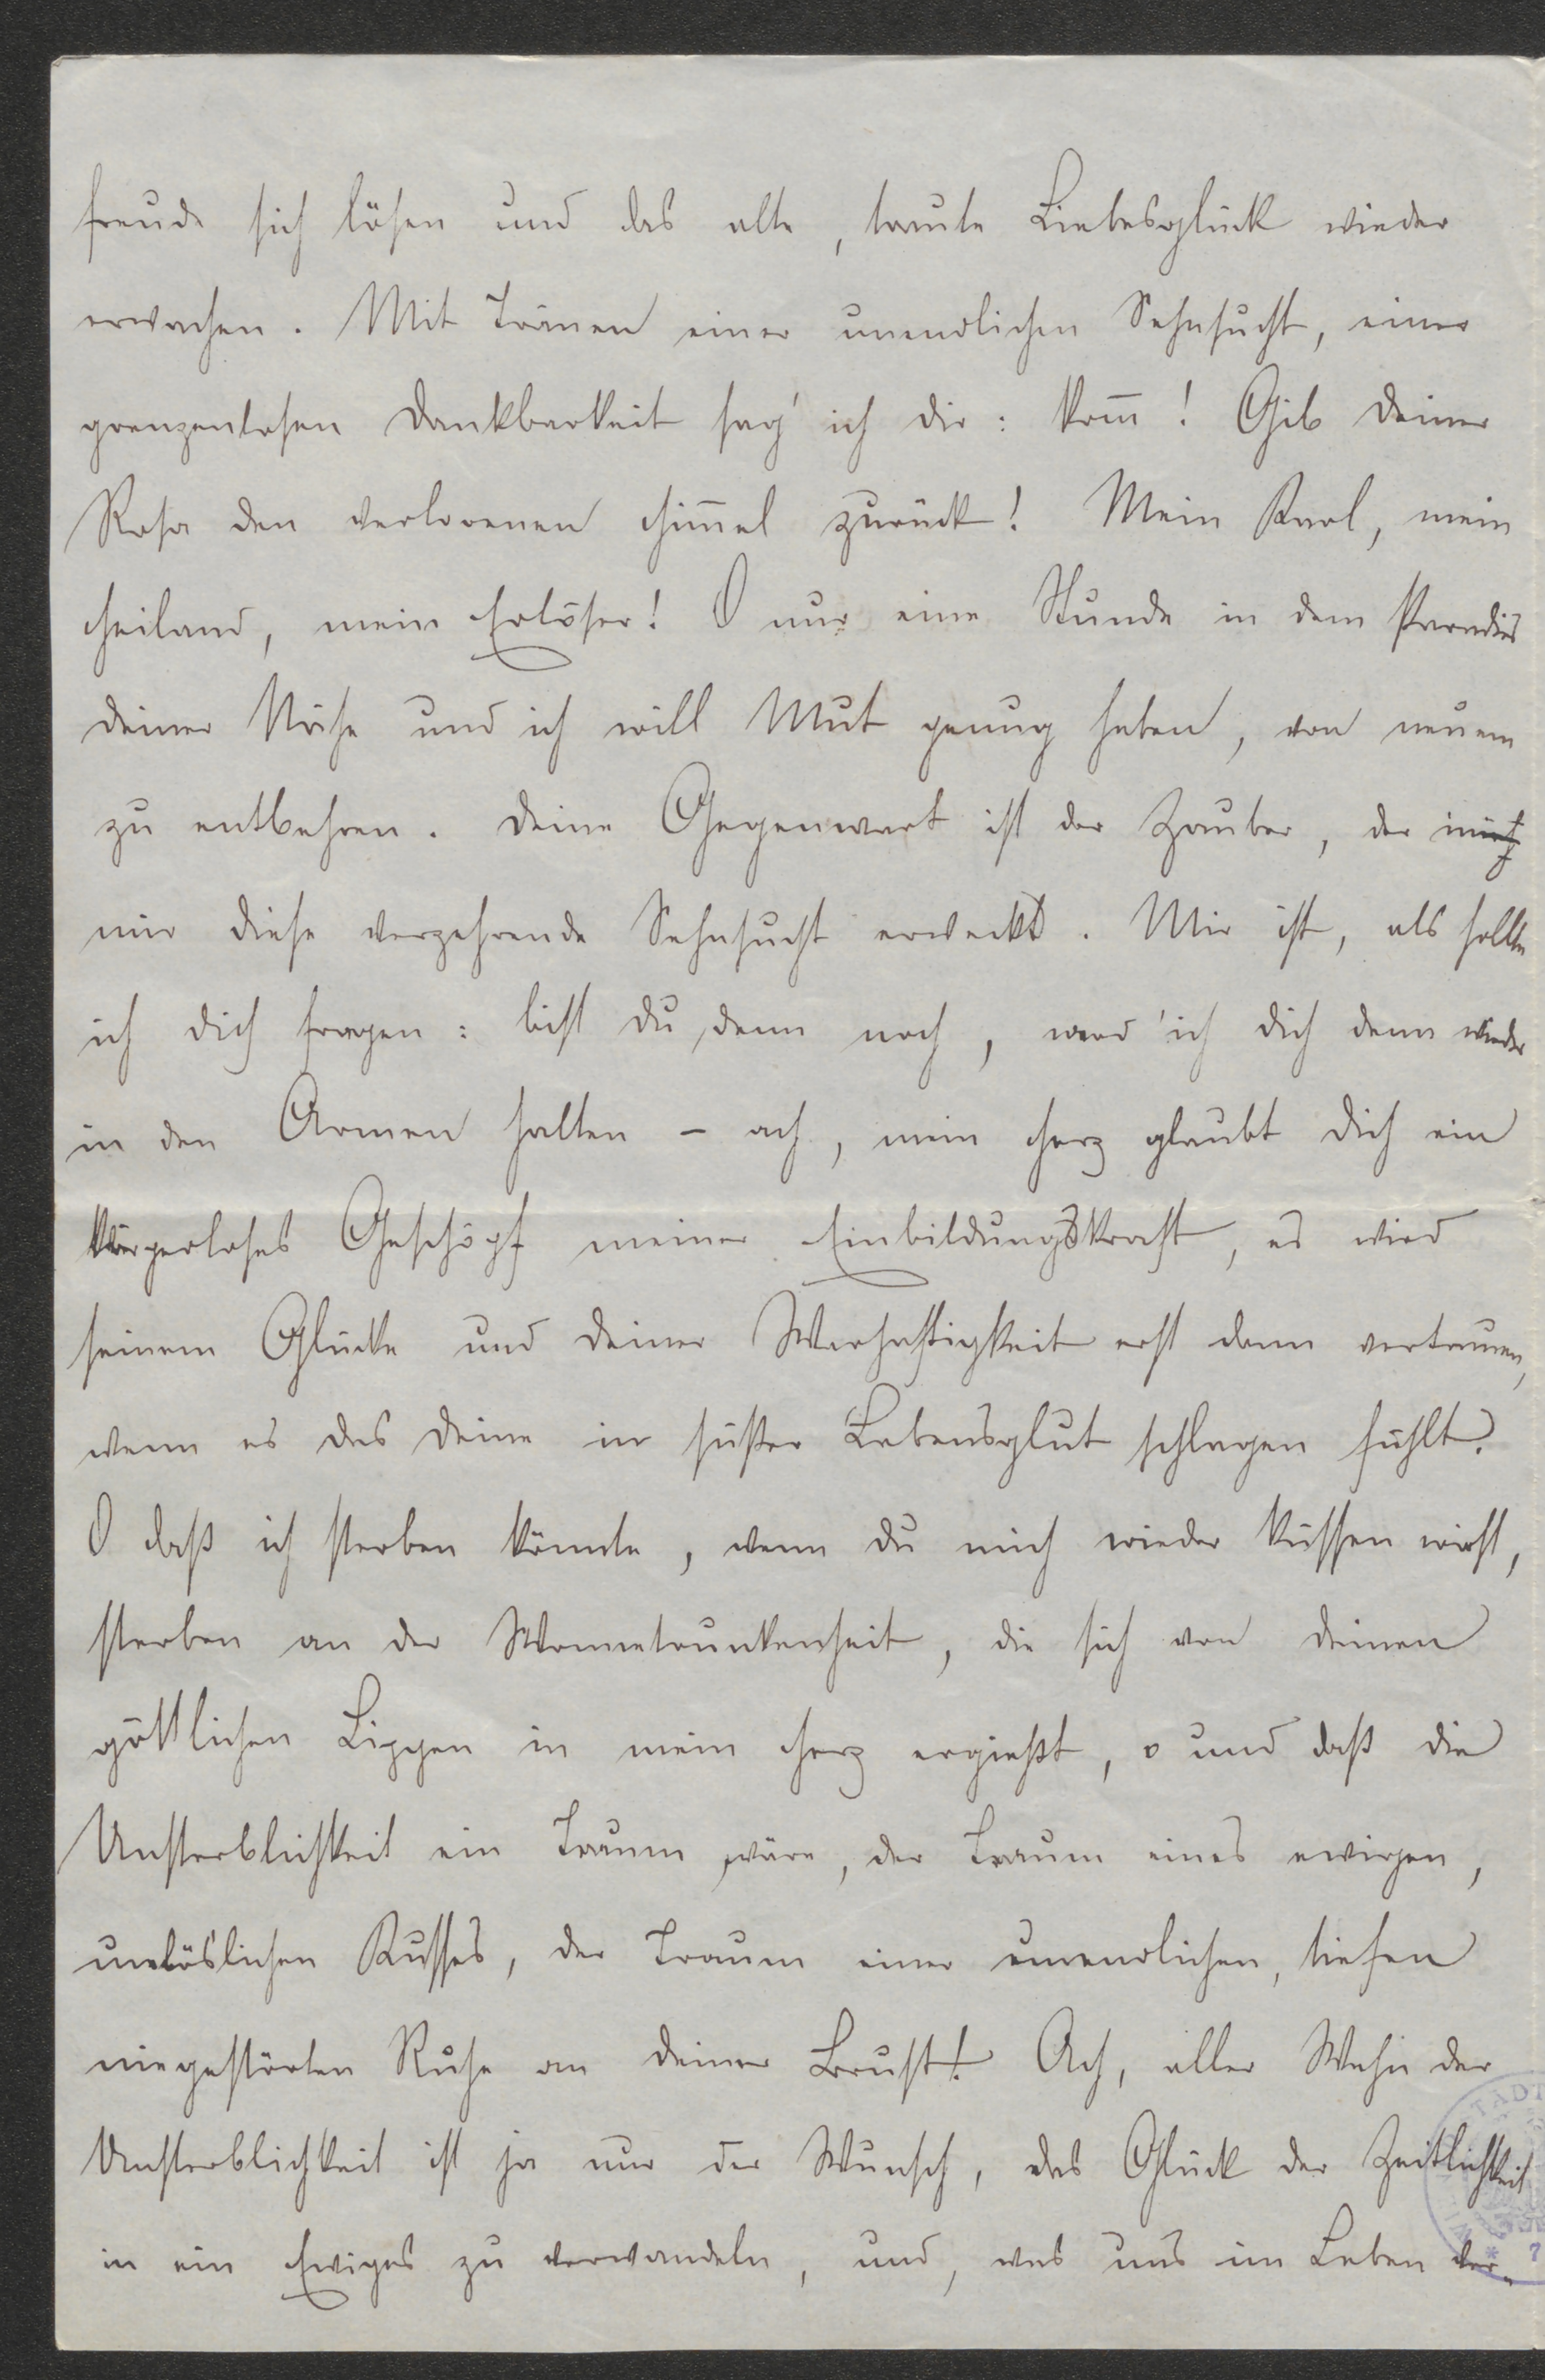 freude sich lösen und das alte, traute Liebesglück wieder
erwachen. Mit Tränen einer unendlichen Sehnsucht, einer
grenzenlosen Dankbarkeit sag' ich dir: kom̅! Gib deiner
Rosa den verlorenen Him̅el zurück! Mein Karl, mein
Heiland, mein Erlöser! O nur eine Stunde in dem Paradies
deiner Nähe und ich will Mut genug haben, von neuem
zu entbehren. Deine Gegenwart ist der Zauber, der in
mir diese verzehrende Sehnsucht erweckt. Mir ist, als sollte
ich dich fragen: bist du denn noch, werd' ich dich denn wieder
in den Armen halten – ach, mein Herz glaubt dich ein
körperloses Geschöpf meiner Einbildungskraft, es wird
seinem Glücke und deiner Warhaftigkeit erst dann vertrauen,
wenn es das deine in süßer Lebensglut schlagen fühlt.
O daß ich sterben könnte, wenn du mich wieder küssen wirst,
sterben an der Wonnetrunkenheit, die sich von deinen
göttlichen Lippen in mein Herz ergießt, o und daß die
Unsterblichkeit ein Traum wäre, der Traum eines ewigen,
unlöslichen Kusses, der Traum einer unendlichen, tiefen
niegestörten Ruhe an deiner Brust! Ach, aller Wahn der
Unsterblichkeit ist ja nur der Wunsch, das Glück der Zeitlichkeit
in ein Ewiges zu verwandeln, und, was uns im Leben ver-